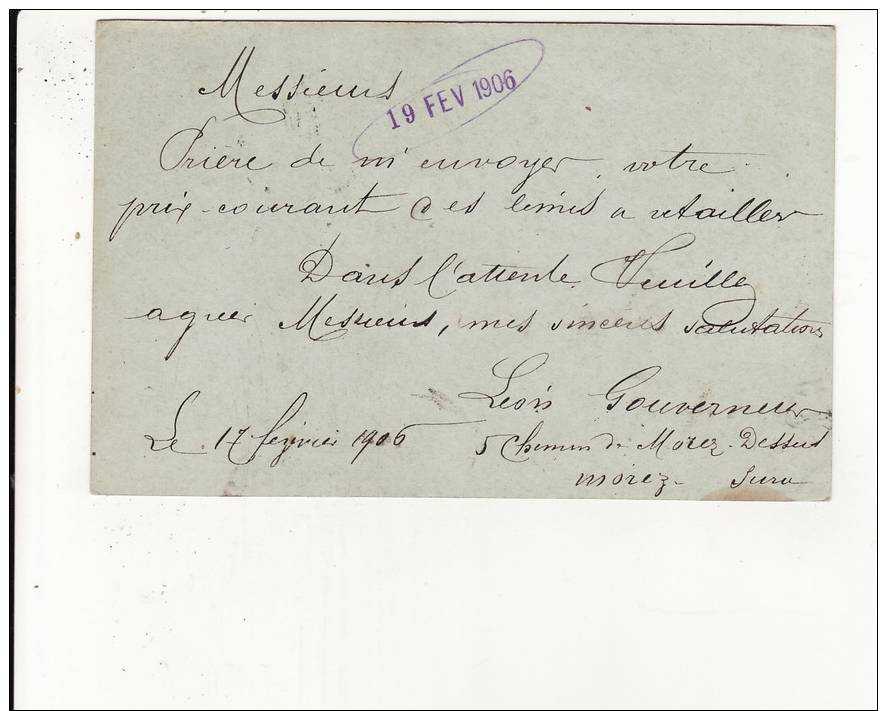 Messieurs
19 FEV 1906
Prière de m'envoyer votre
prix-courant des limes a retailler
Dans l'attente Veuillez
agreer Messieurs, mes sincères salutations
Léon Gouverneur
Le 17 février 1906
5 Chemin de Morez-Dessus
Morez - Jura